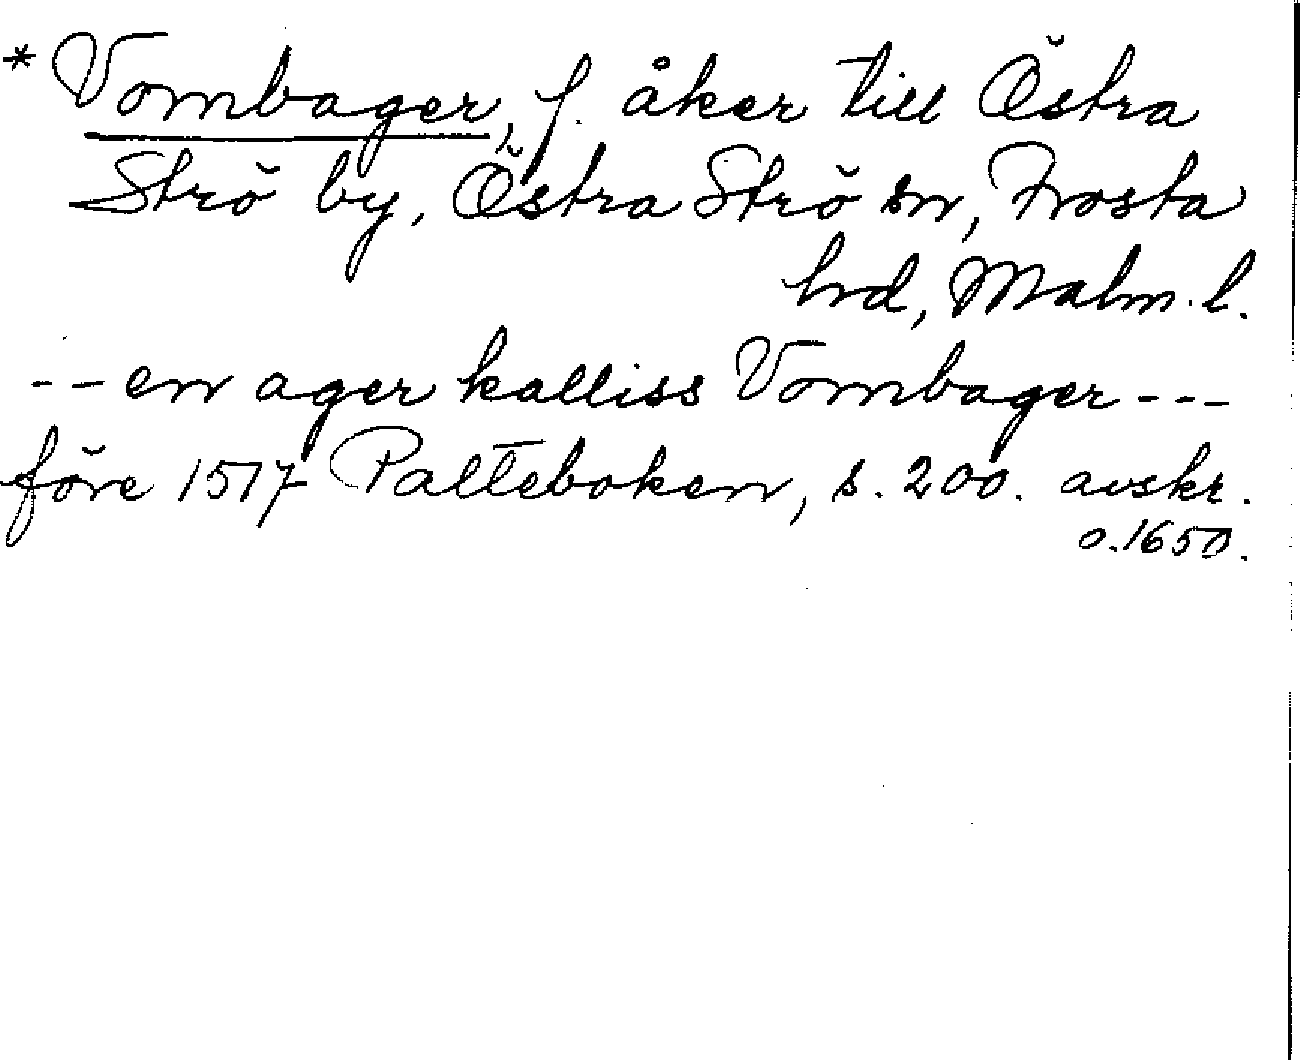 * Vombager, f. åker till Östra
Strö by, Östra Strö sn, Frosta
hrd, Malm. l.
-- en ager kalliss Vombager ---
före 1517 Palteboken, s. 200. avskr.
o. 1650.